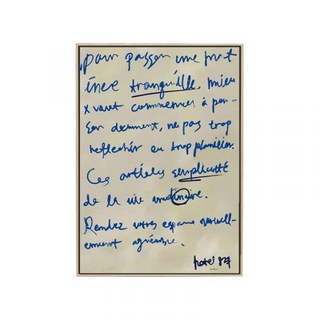 pour passer une nuit
ince tranquille, mieu
x vaut commencer à pen
ser doucement, ne pas trop
reflechir ou trop
Ces articles simplicité
de la vie
Rendez votre espace
ement agréable.
hotel 827